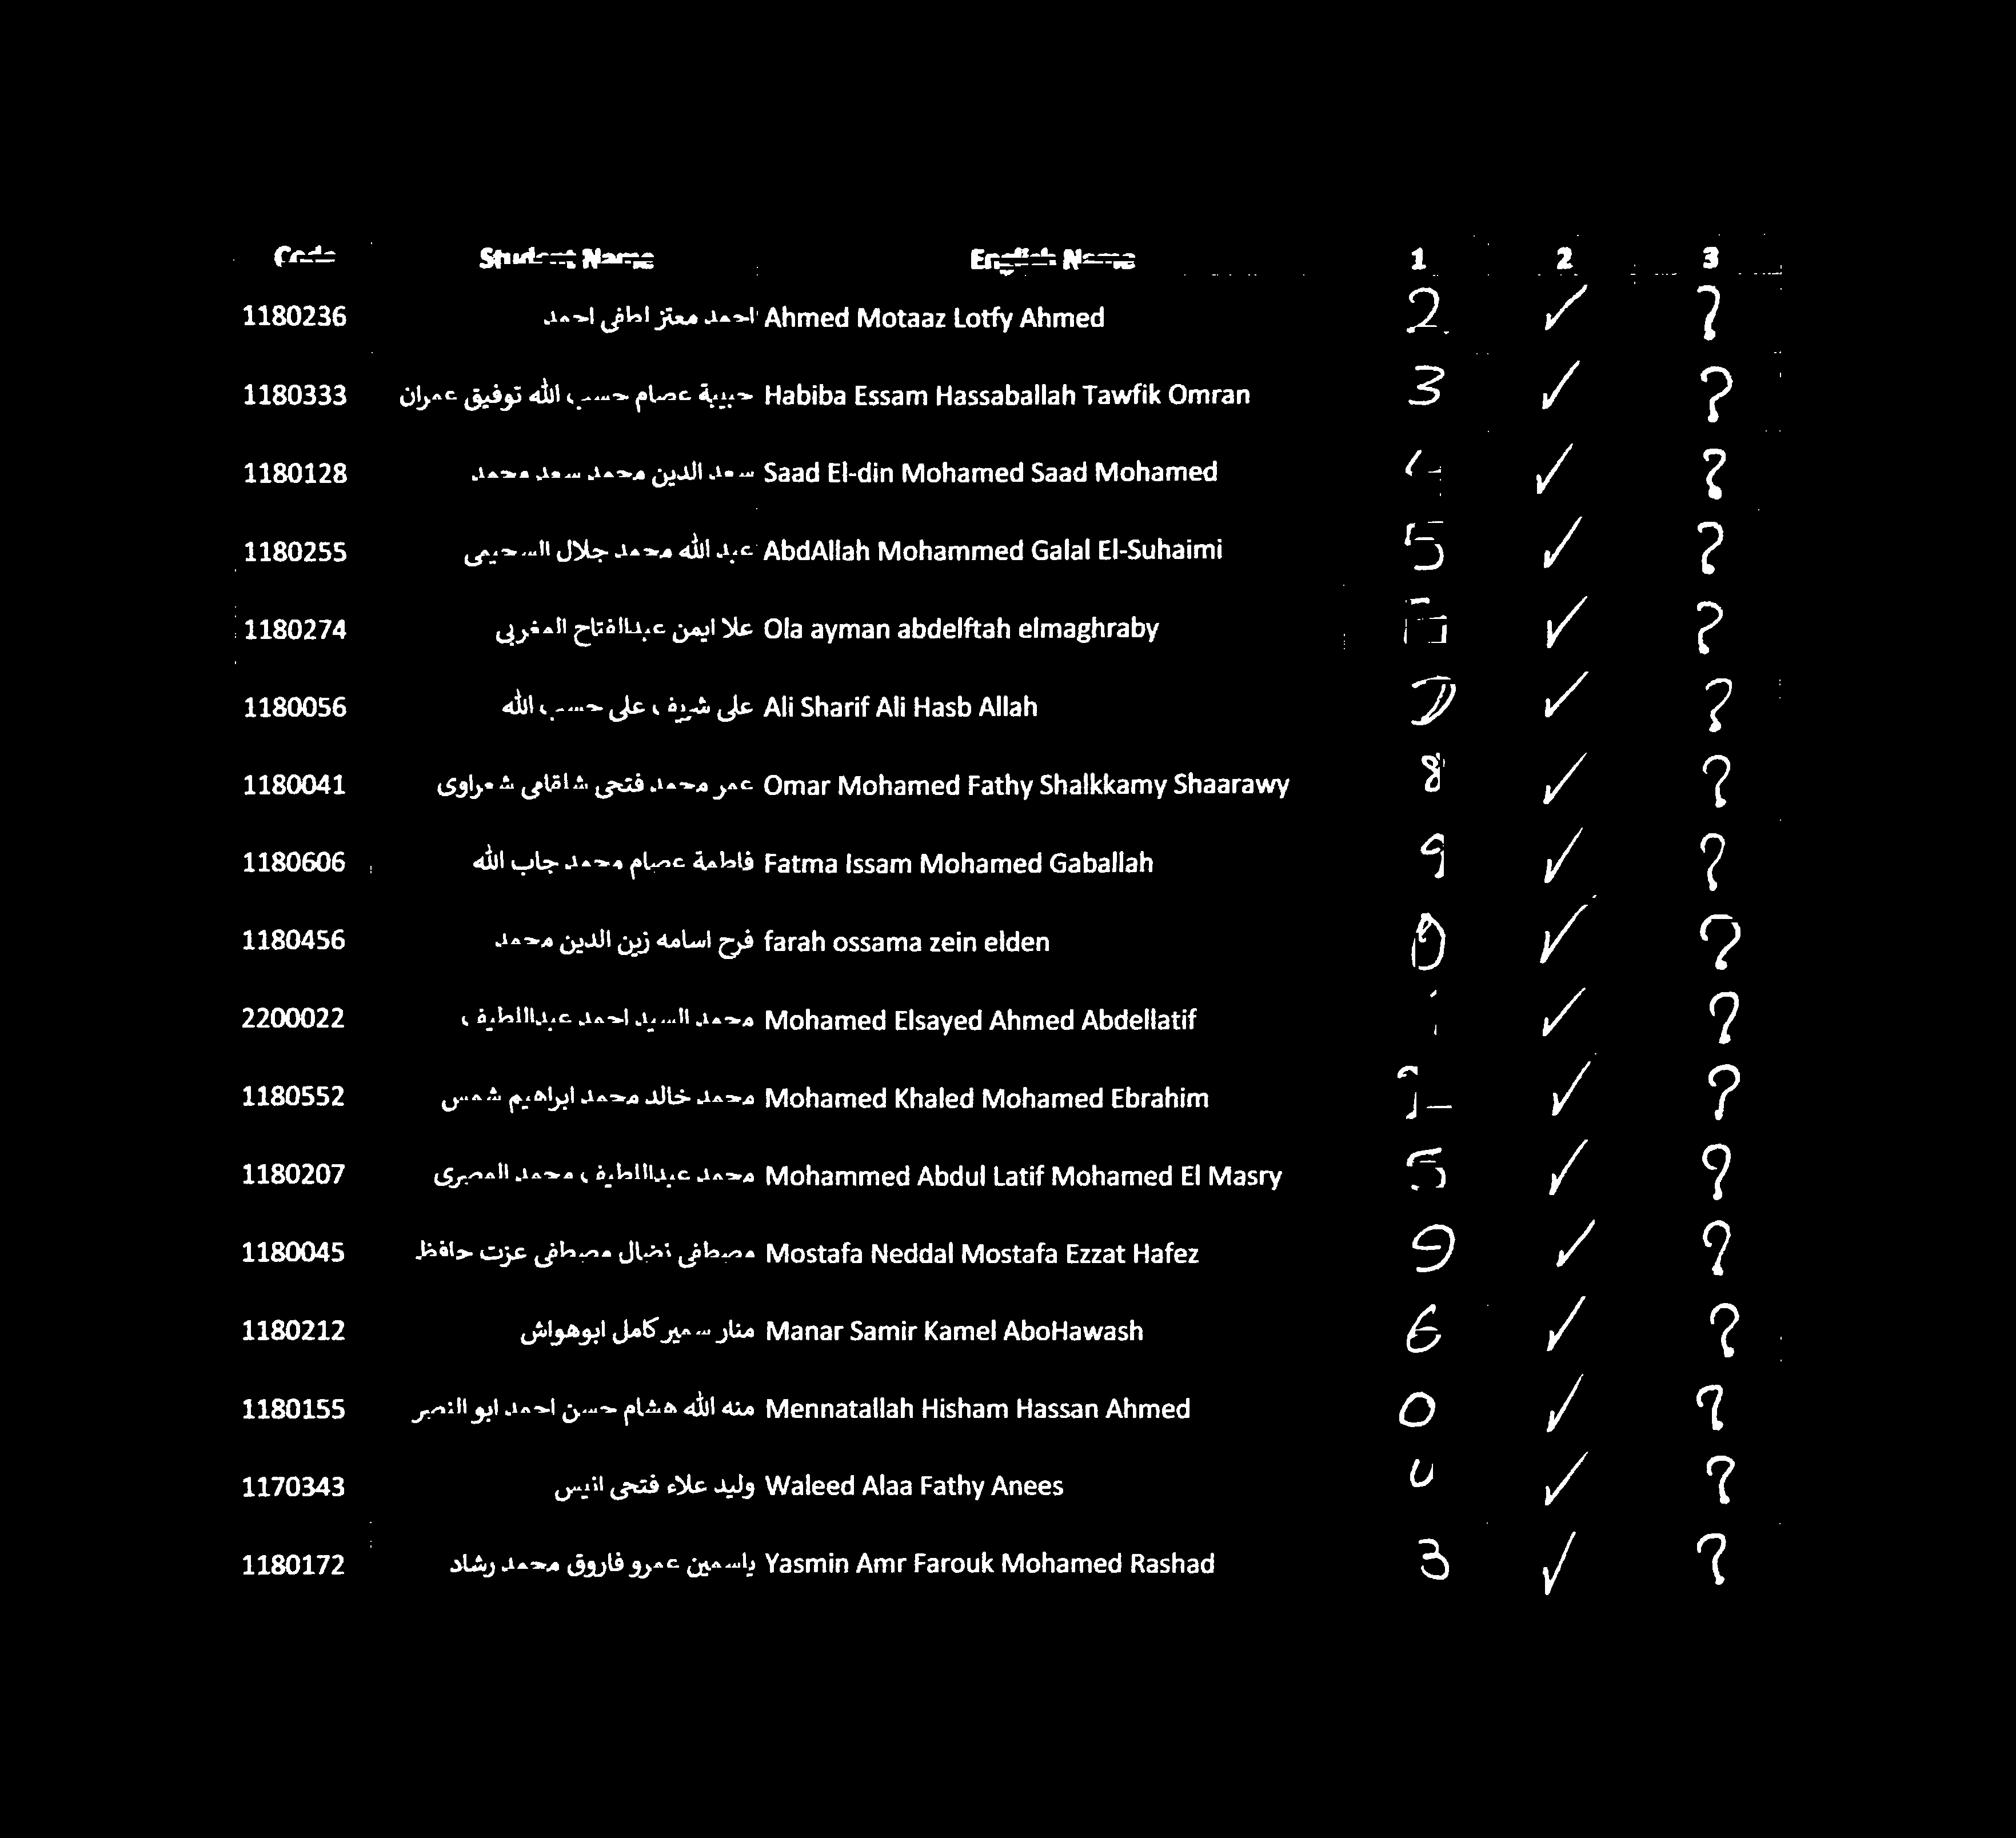 Code Student Name English Name 1 2 3
1180236 احمد معتز لطفى احمد Ahmed Motaaz Lotfy Ahmed 2 ✓ ?
1180333 حبيبة عصام حسب الله توفيق عمران Habiba Essam Hassaballah Tawfik Omran 3 ✓ ?
1180128 سعد الدين محمد سعد محمد Saad El-din Mohamed Saad Mohamed ✓ ?
1180255 عبد الله محمد جلال السحيمى AbdAllah Mohammed Galal El-Suhaimi 5 ✓ ?
1180274 علا ايمن عبدالفتاح المغربي Ola ayman abdelftah elmaghraby ✓ ?
1180056 على شريف على حسب الله Ali Sharif Ali Hasb Allah ✓ ?
1180041 عمر محمد فتحى شلقامى شعراوى Omar Mohamed Fathy Shalkkamy Shaarawy 8 ✓ ?
1180606 فاطمة عصام محمد جاب الله Fatma Issam Mohamed Gaballah 9 ✓ ?
1180456 فرح اسامه زين الدين محمد farah ossama zein elden ✓ ?
2200022 محمد السيد احمد عبداللطيف Mohamed Elsayed Ahmed Abdellatif ✓ ?
1180552 محمد خالد محمد ابراهيم شمس Mohamed Khaled Mohamed Ebrahim ✓ ?
1180207 محمد عبداللطيف محمد المصرى Mohammed Abdul Latif Mohamed El Masry 5 ✓ ?
1180045 مصطفى نضال مصطفى عزت حافظ Mostafa Neddal Mostafa Ezzat Hafez 9 ✓ ?
1180212 منار سمير كامل ابوهواش Manar Samir Kamel AboHawash 6 ✓ ?
1180155 منه الله هشام حسن احمد ابو النصر Mennatallah Hisham Hassan Ahmed 0 ✓ ?
1170343 وليد علاء فتحى انيس Waleed Alaa Fathy Anees ✓ ?
1180172 ياسمين عمرو فاروق محمد رشاد Yasmin Amr Farouk Mohamed Rashad 3 ✓ ?